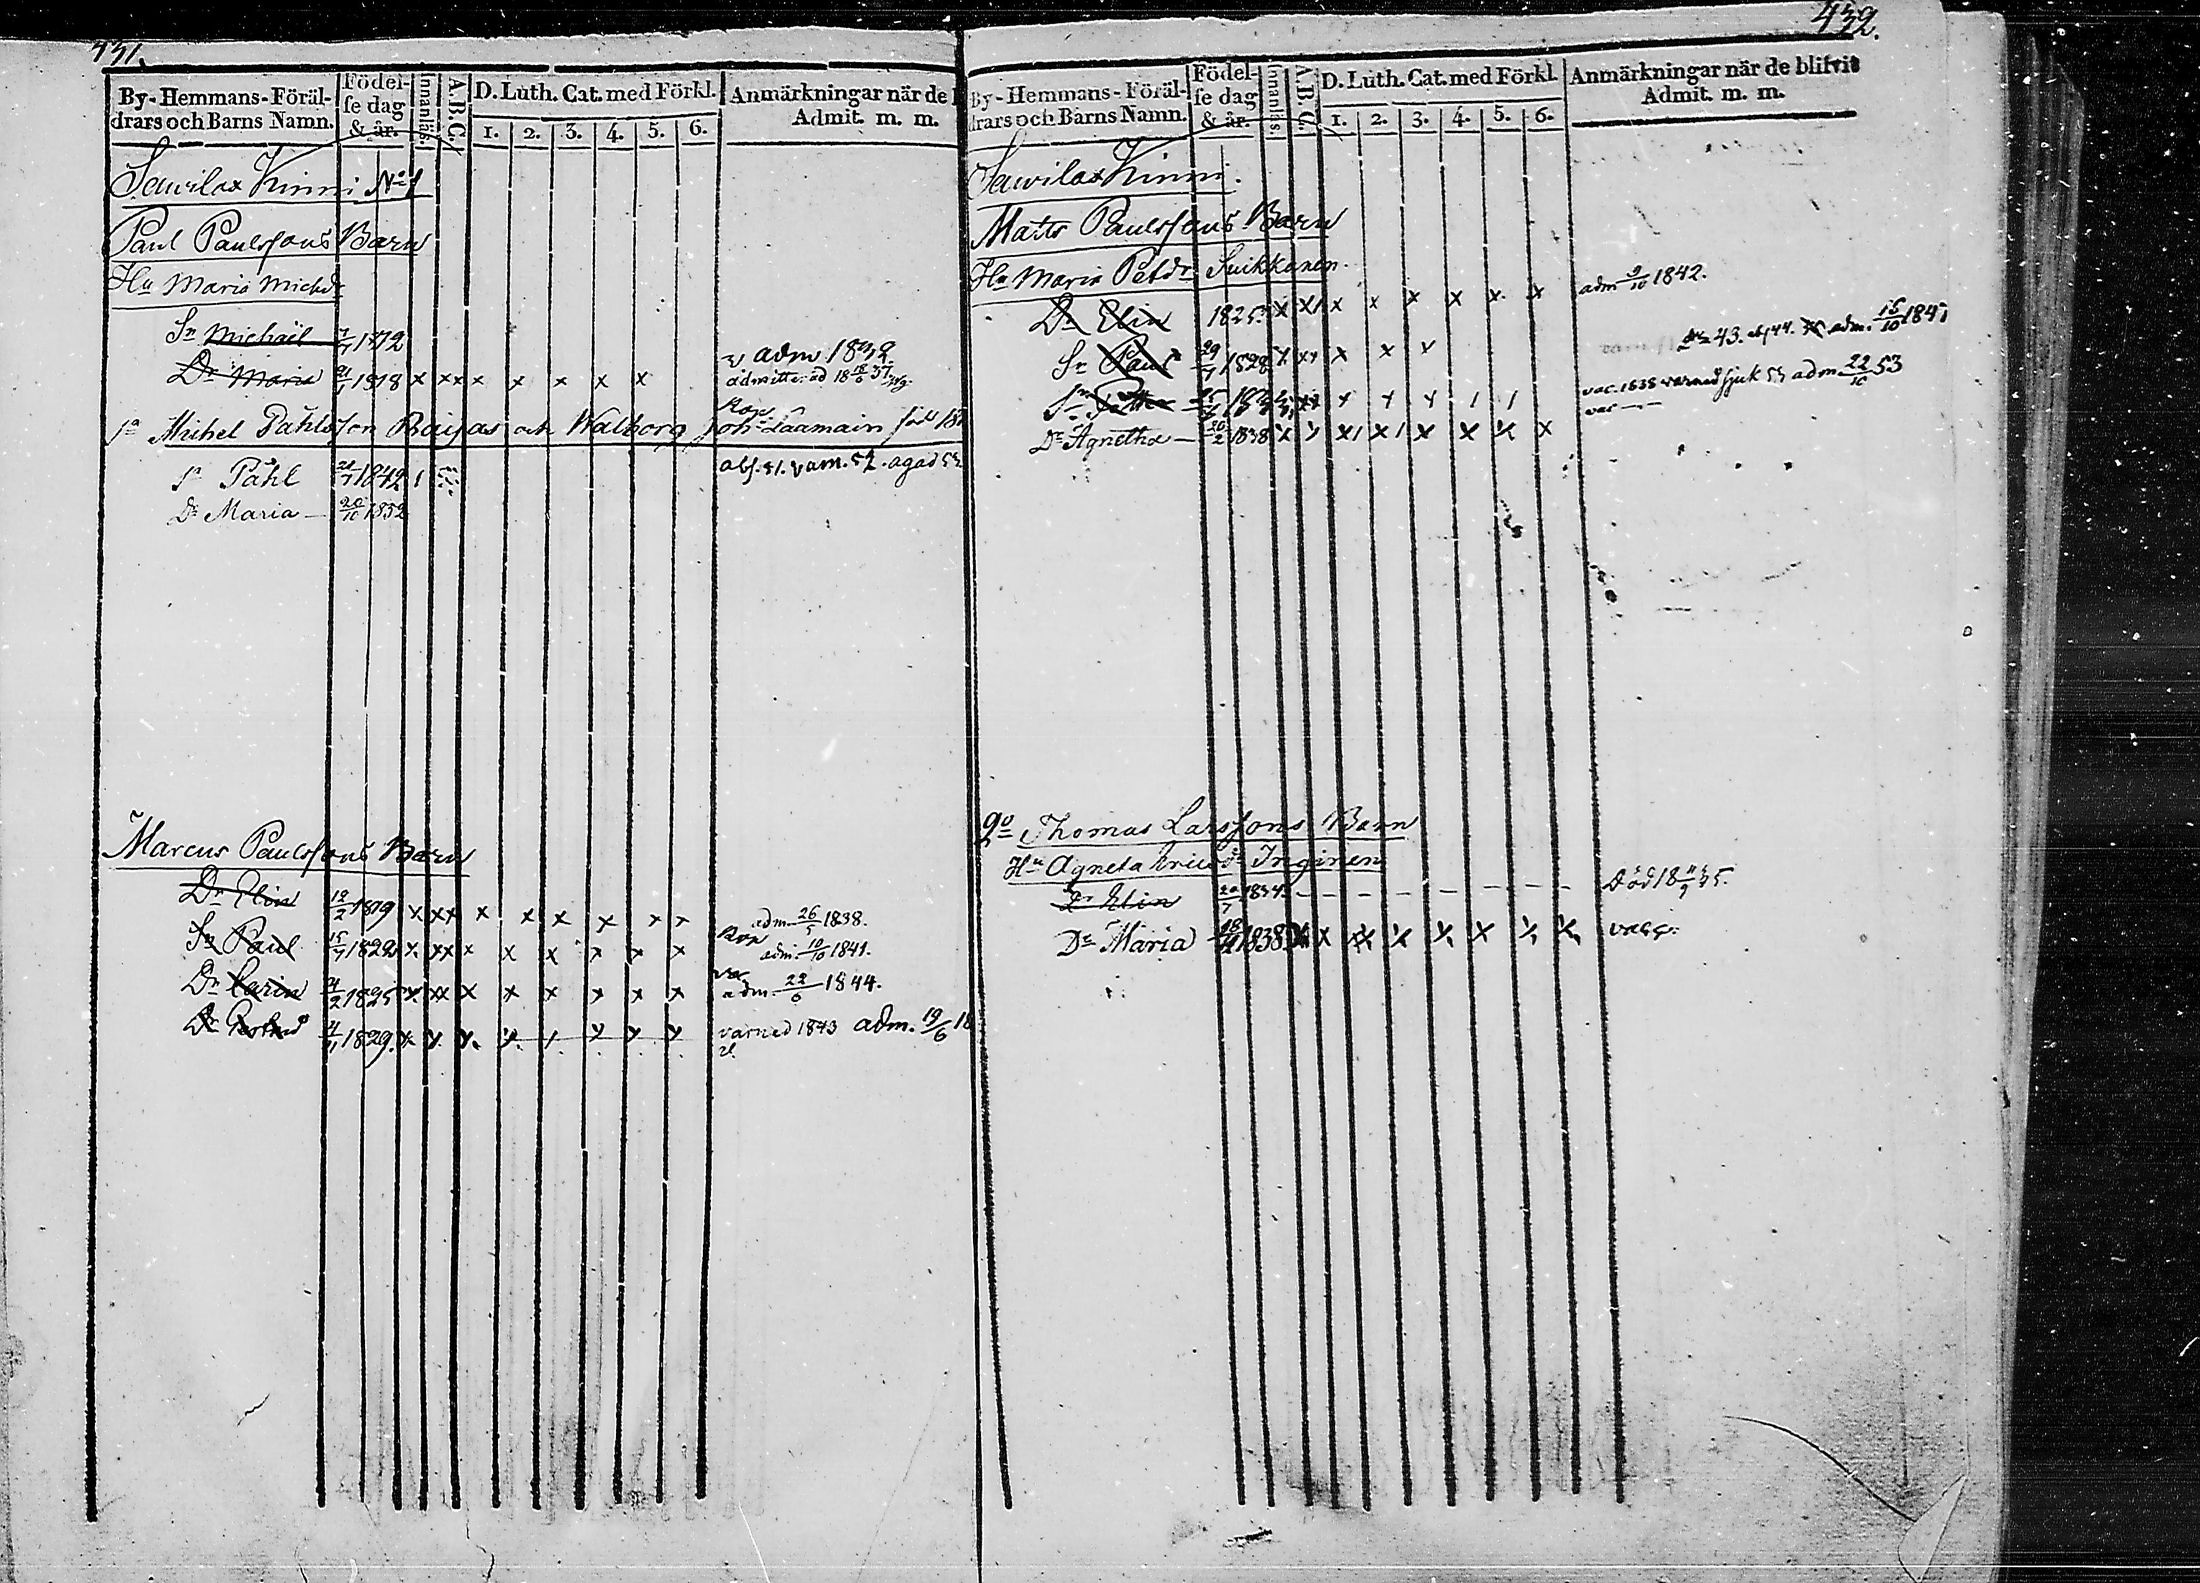 431.
By-Hemmans-Föräl-
drars och Barns Namn.
Födel-
se dag
& år.
Innanläs.
A.B.C.
D. Luth. Cat. med Förkl.
1. 2. 3. 4. 5. 6.
Anmärkningar när de
Admit. m. m.
Sawilax Kinni No 1
Paul Paulssons Barn
Hu Maria Michdr
Sn Michaël 7/7 1812 adm 1832
Dr Maria 21/1 1818 x xx x x x x x admitterad 18 18/6 37
Michel Påhlsson och Walborg Joh: Laamain
Sn Påhl 1842 1 abs. 51.
Dr Maria — 20/10 1852
Marcus Paulssons Barn
Dr Elin 12/2 1819 x xx x x x x x x adm. 26/5 1838.
Sn Paul 15/7 1822 x xx x x x x x x adm. 10/10 1841.
Dr Carin 4/2 1825 x xx x x x x x x adm. 22/6 1844.
Dr 4/11 1829. x x x. x x x x x varned 1843 adm. 19/6 18
432.
By-Hemmans-Föräl-
drars och Barns Namn.
Födel-
se dag
& år.
Innanläs
A.B.C.
D. Luth. Cat. med Förkl.
1. 2. 3. 4. 5. 6.
Anmärkningar när de blifvit
Admit. m. m.
Sawilax Kinni.
Matts Paulssons Barn
Hu Maria Petdr Suikkanen.
Dr Elin 1825 x xx x x x x x x adm 9/10 1842.
Sn Paul 29/7 1828 x xx x x x 43. abs 44. adm. 16/10 184
Sn x xx x x x 1 1 vac. 1838 varned sjuk 53 adm 22/10 53
Dr Agnetha — 20/2 1838 x x x1 x1 x x x x vac —
2o Thomas Larssons Barn
Hu Agneta Ericsdr Inginen
Dr Elin 20/7 1834 — — — — — — — Död 18 11/9 35.
Dr Maria 1838 x x x x x x x x vacc.